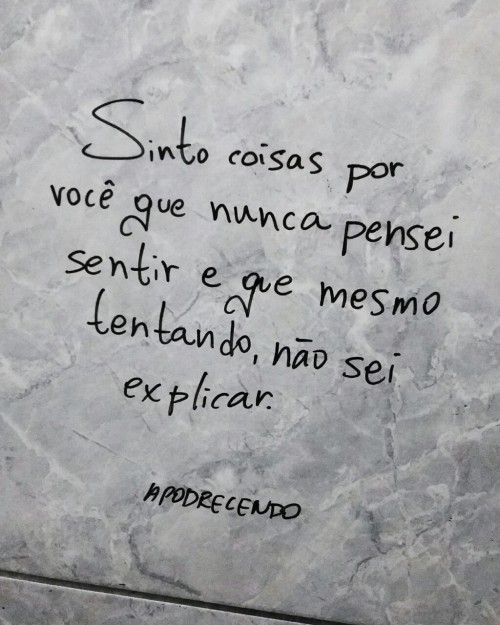 Sinto coisas por
você que nunca pensei
sentir e que mesmo
tentando, não sei
explicar.
APODRECENDO